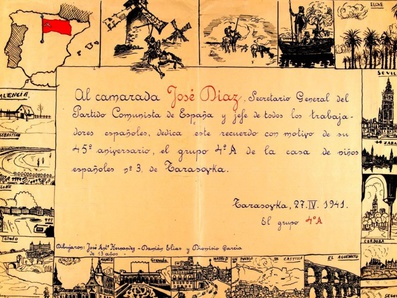 ELCHE
SEVILLA
VALENCIA
Al camarada José Díaz, Secretario General del
Partido Comunista de España y jefe de todos los trabaja-
dores españoles, dedica este recuerdo con motivo de su
45º aniversario, el grupo 4ºA de la casa de niños
españoles nº 3. de Tarasovka.
Tarasovka, 27. IV. 1941.
El grupo 4ºA
Dibujaron: José Antº Hernández - Damián Elias y Dionisio García
de 13 años
TOLEDO
CORDOBA